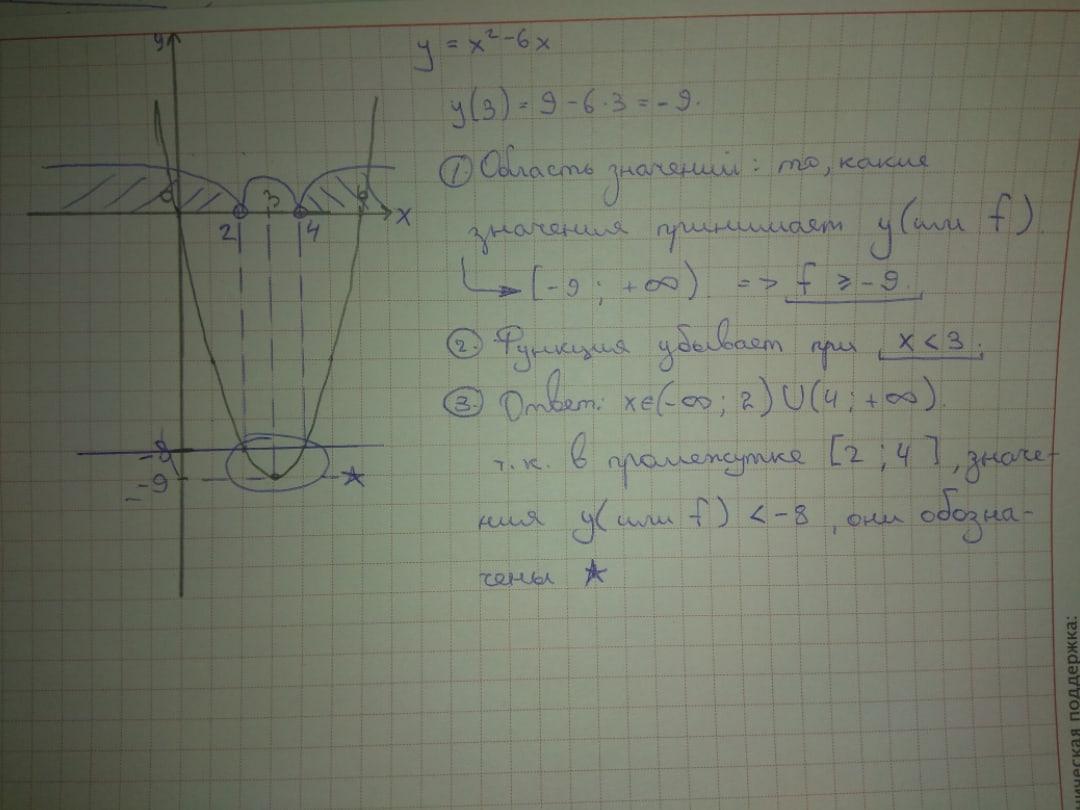 y = x² - 6x
y(3) = 9 - 6 · 3 = - 9.
① Область значений : то, какие
значения принимает y (или f)
[ - 9 ; +∞) => f ⩾ - 9.
② Функция убывает при x < 3.
③ Ответ: x∈(-∞; 2) U (4; +∞).
т.к. в промежутке [2 ; 4], значе-
ния y (или f) < - 8, они обозна-
чены ★
y
0 3 6
x
2 4
-8
-9 ★
ическая поддержка: